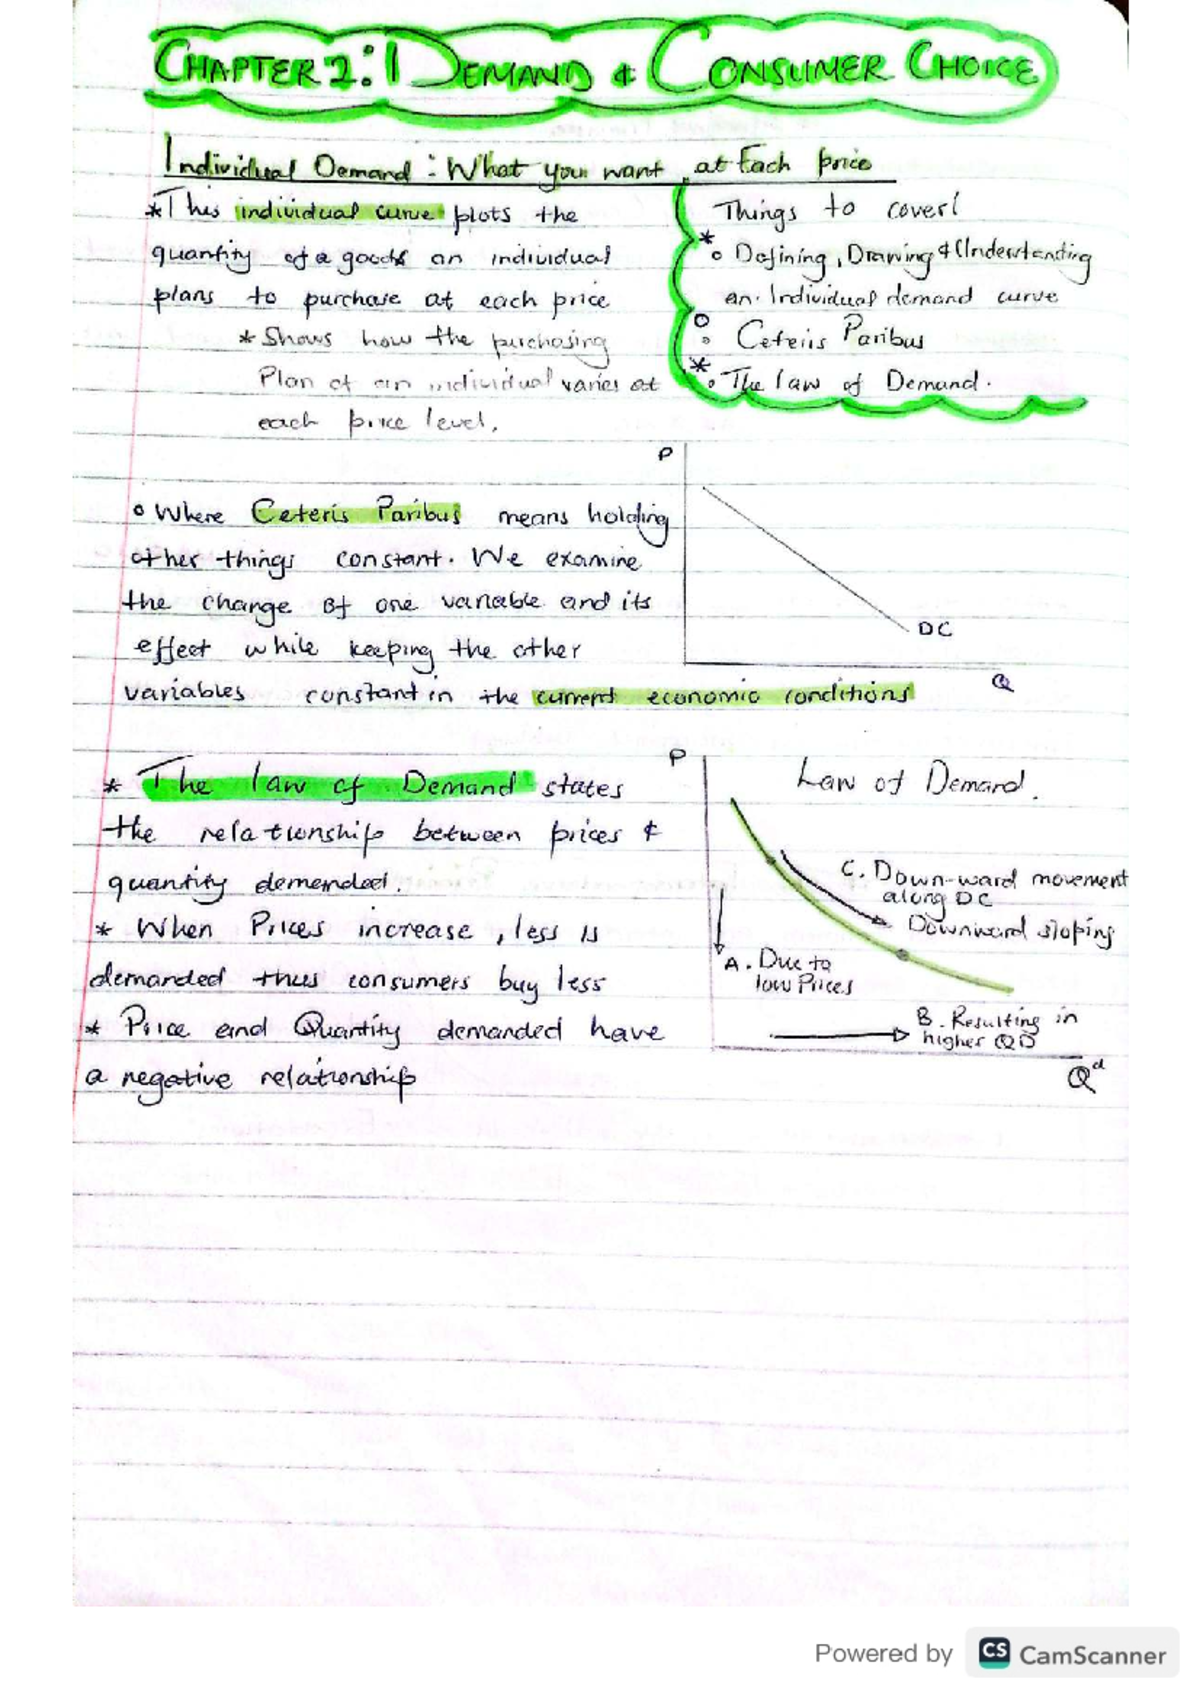 CHAPTER 2: 1 DEMAND & CONSUMER CHOICE
Individual Demand: What you want at Each price
* This individual curve plots the
quantity of a goods an individual
plans to purchase at each price
* Shows how the purchasing
Plan of an individual varies at
each price level.
Things to cover!
* Defining, Drawing & Understanding
an Individual demand curve
Ceteris Paribus
* The law of Demand.
P
DC
Q
Where Ceteris Paribus means holding
other things constant. We examine
the change of one variable and its
effect while keeping the other
variables constant in the current economic conditions
* The law of Demand states
the relationship between prices &
quantity demended.
* When Prices increase, less is
demanded thus consumers buy less
* Price and Quantity demanded have
a negative relationship
P
Law of Demand.
C. Down-ward movement
along DC
Downward sloping
A. Due to
low Prices
B. Resulting in
higher QD
Qd
Powered by CS CamScanner